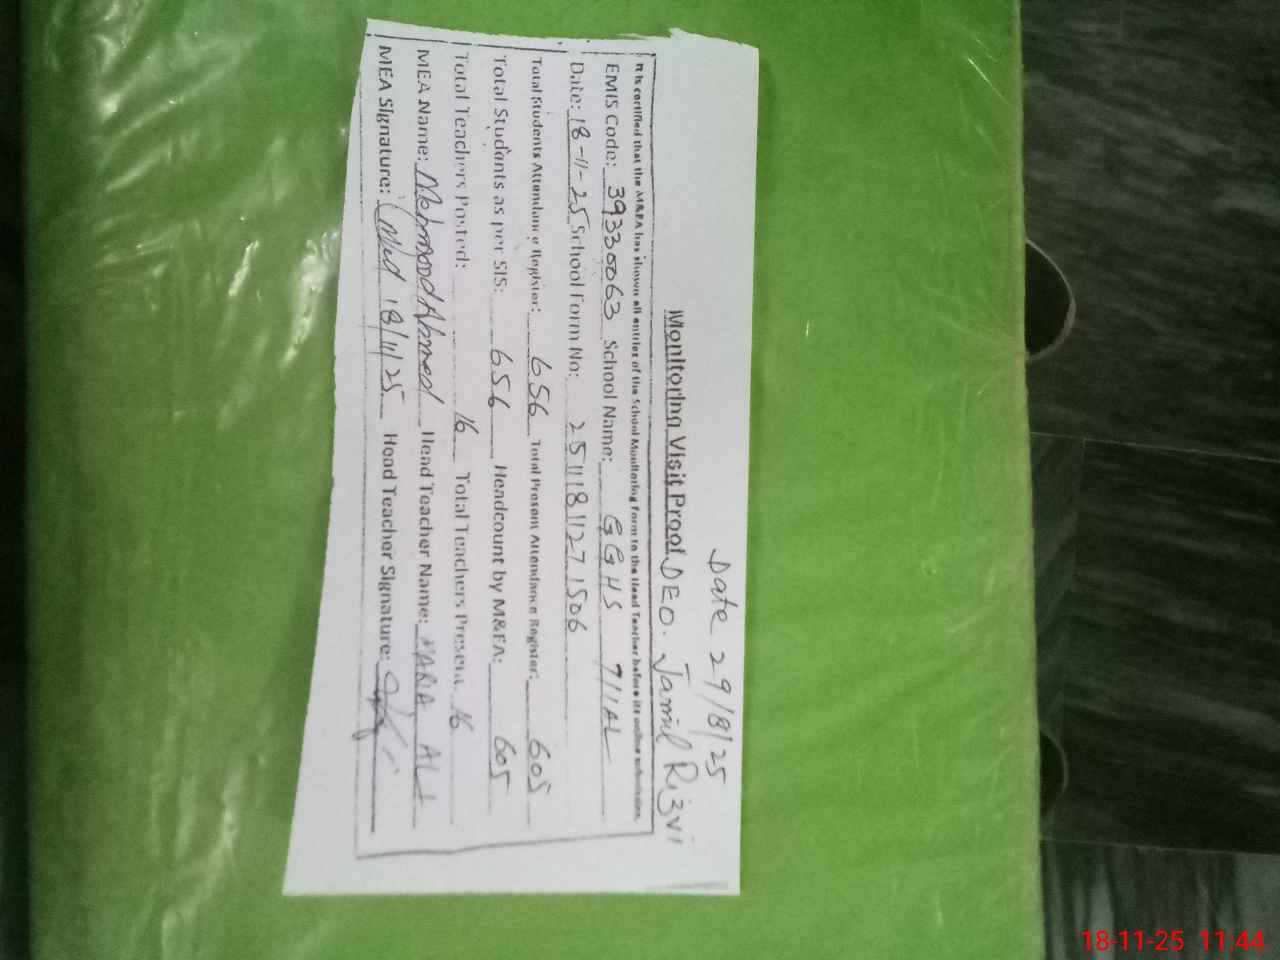 Date 29/8/25
Monitoring Visit Proof DEO. Jamil Rizvi
It is certified that the M&EA has shown all entries of the School Monitoring Form to the Head Teacher before its online submission.
EMIS Code: 39330063 School Name: GGHS 711AL
Date: 18-11-25 School Form No: 25111811271506
Total Students Attendance Register: 656 Total Present Attendance Register: 605
Total Students as per SIS: 656 Headcount by M&EA: 605
Total Teachers Posted: 16 Total Teachers Present: 16
MEA Name: Mehmood Ahmed Head Teacher Name: MARIA ALI
MEA Signature: 18/11/25 Head Teacher Signature:
18-11-25 11:44